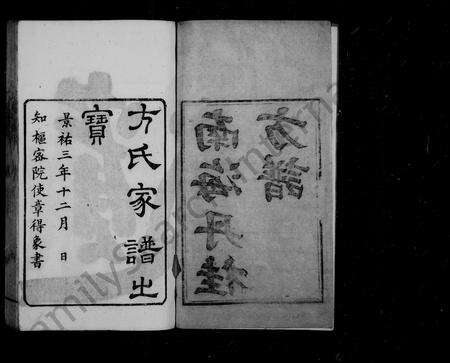 南海丹桂
方譜
方氏家譜世
寶
景祐三年十二月　日
知樞密院使章得象書